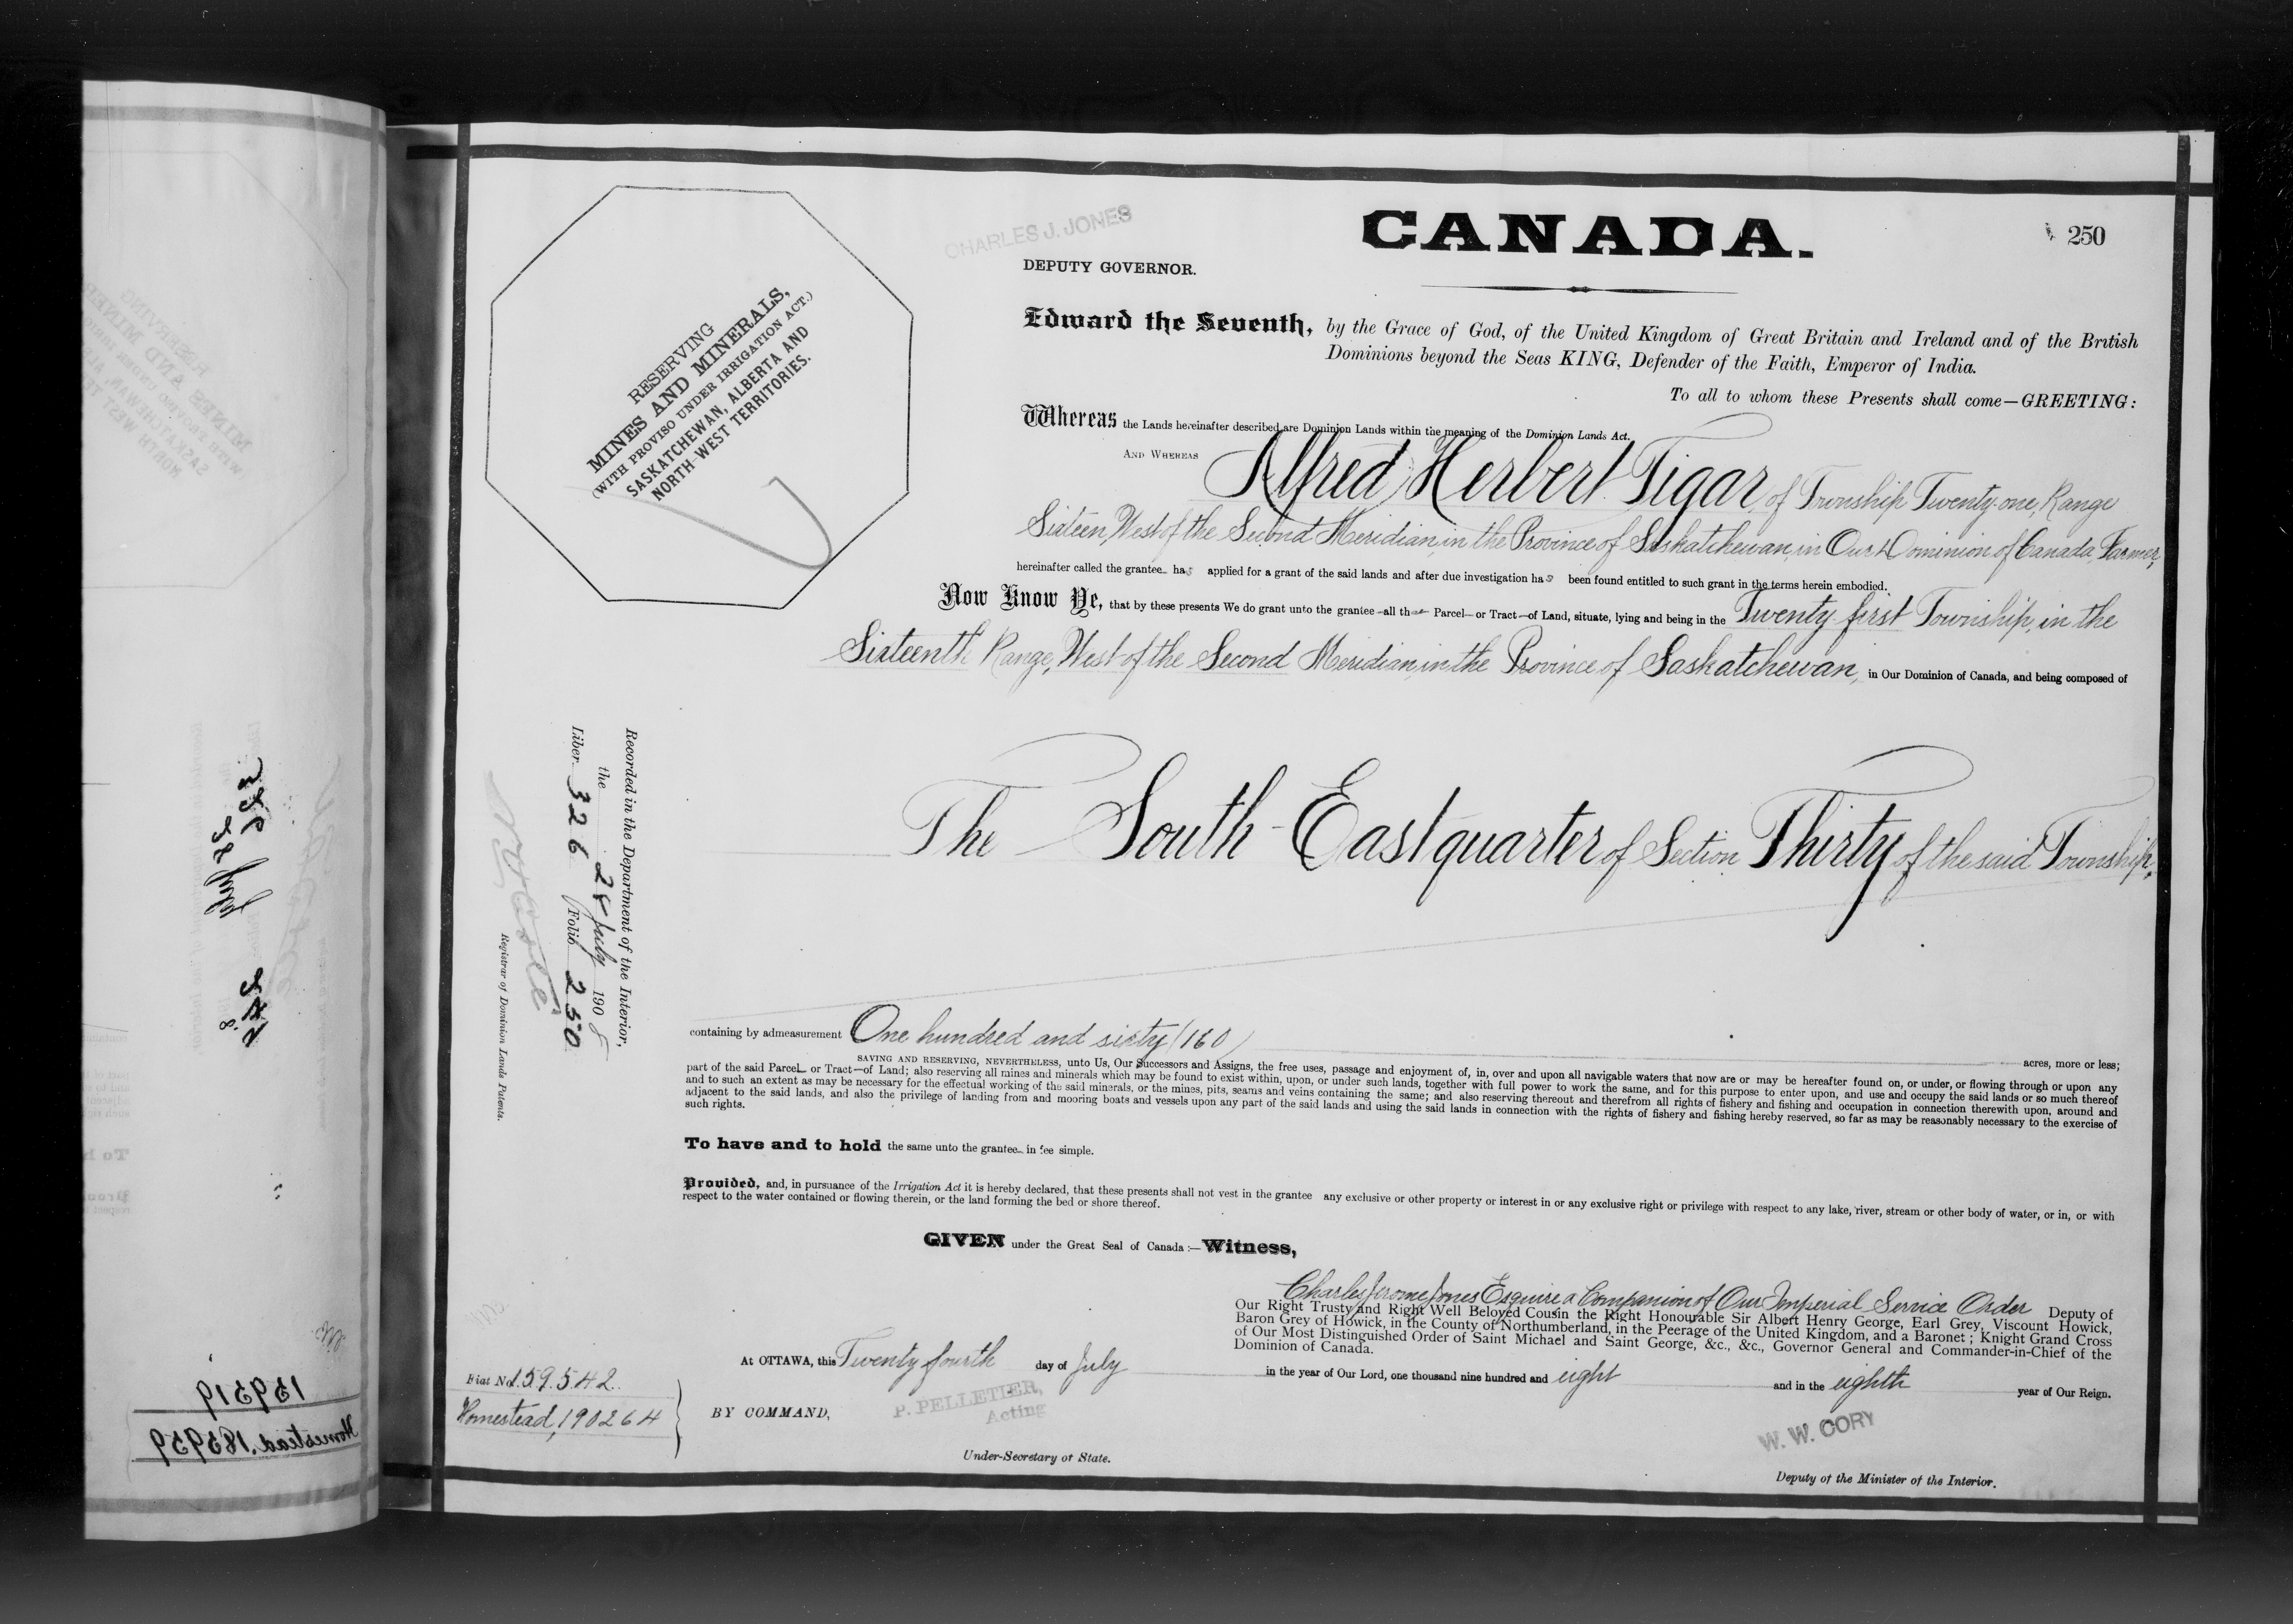 CANADA.
250
CHARLES J. JONES
DEPUTY GOVERNOR.
RESERVING
MINES AND MINERALS,
(WITH PROVISO UNDER IRRIGATION ACT.)
SASKATCHEWAN, ALBERTA AND
NORTH-WEST TERRITORIES.
Edward the Seventh, by the Grace of God, of the United Kingdom of Great Britain and Ireland and of the British
Dominions beyond the Seas KING, Defender of the Faith, Emperor of India.
To all to whom these Presents shall come—GREETING:
Whereas the Lands hereinafter described are Dominion Lands within the meaning of the Dominion Lands Act.
AND WHEREAS Alfred Herbert Tigar, of Township Twenty-one, Range
Sixteen, West of the Second Meridian, in the Province of Saskatchewan, in Our Dominion of Canada, Farmer,
hereinafter called the grantee has applied for a grant of the said lands and after due investigation has been found entitled to such grant in the terms herein embodied.
Now Know Ye, that by these presents We do grant unto the grantee all that Parcel or Tract of Land, situate, lying and being in the Twenty first Township, in the
Sixteenth Range, West of the Second Meridian, in the Province of Saskatchewan, in Our Dominion of Canada, and being composed of
The South-East quarter of Section Thirty of the said Township,
Recorded in the Department of the Interior,
the 28 July 1908
Liber 326 Folio 250
Registrar of Dominion Lands Patents.
containing by admeasurement One hundred and sixty (160) acres, more or less;
SAVING AND RESERVING, NEVERTHELESS, unto Us, Our Successors and Assigns, the free uses, passage and enjoyment of, in, over and upon all navigable waters that now are or may be hereafter found on, or under, or flowing through or upon any
part of the said Parcel or Tract of Land; also reserving all mines and minerals which may be found to exist within, upon, or under such lands, together with full power to work the same, and for this purpose to enter upon, and use and occupy the said lands or so much thereof
and to such an extent as may be necessary for the effectual working of the said minerals, or the mines, pits, seams and veins containing the same; and also reserving thereout and therefrom all rights of fishery and fishing and occupation in connection therewith upon, around and
adjacent to the said lands, and also the privilege of landing from and mooring boats and vessels upon any part of the said lands and using the said lands in connection with the rights of fishery and fishing hereby reserved, so far as may be reasonably necessary to the exercise of
such rights.
To have and to hold the same unto the grantee in fee simple.
Provided, and, in pursuance of the Irrigation Act it is hereby declared, that these presents shall not vest in the grantee any exclusive or other property or interest in or any exclusive right or privilege with respect to any lake, river, stream or other body of water, or in, or with
respect to the water contained or flowing therein, or the land forming the bed or shore thereof.
GIVEN under the Great Seal of Canada:—Witness,
Charles Jerome Jones Esquire a Companion of Our Imperial Service Order Deputy of
Our Right Trusty and Right Well Beloved Cousin the Right Honourable Sir Albert Henry George, Earl Grey, Viscount Howick,
Baron Grey of Howick, in the County of Northumberland, in the Peerage of the United Kingdom, and a Baronet; Knight Grand Cross
of Our Most Distinguished Order of Saint Michael and Saint George, &c., &c., Governor General and Commander-in-Chief of the
Dominion of Canada.
At OTTAWA, this Twenty fourth day of July in the year of Our Lord, one thousand nine hundred and eight and in the eighth year of Our Reign.
Fiat No. 159542.
Homestead, 190264
BY COMMAND,
P. PELLETIER,
Acting
Under-Secretary of State.
W. W. CORY
Deputy of the Minister of the Interior.
159519
Homestead. 183959